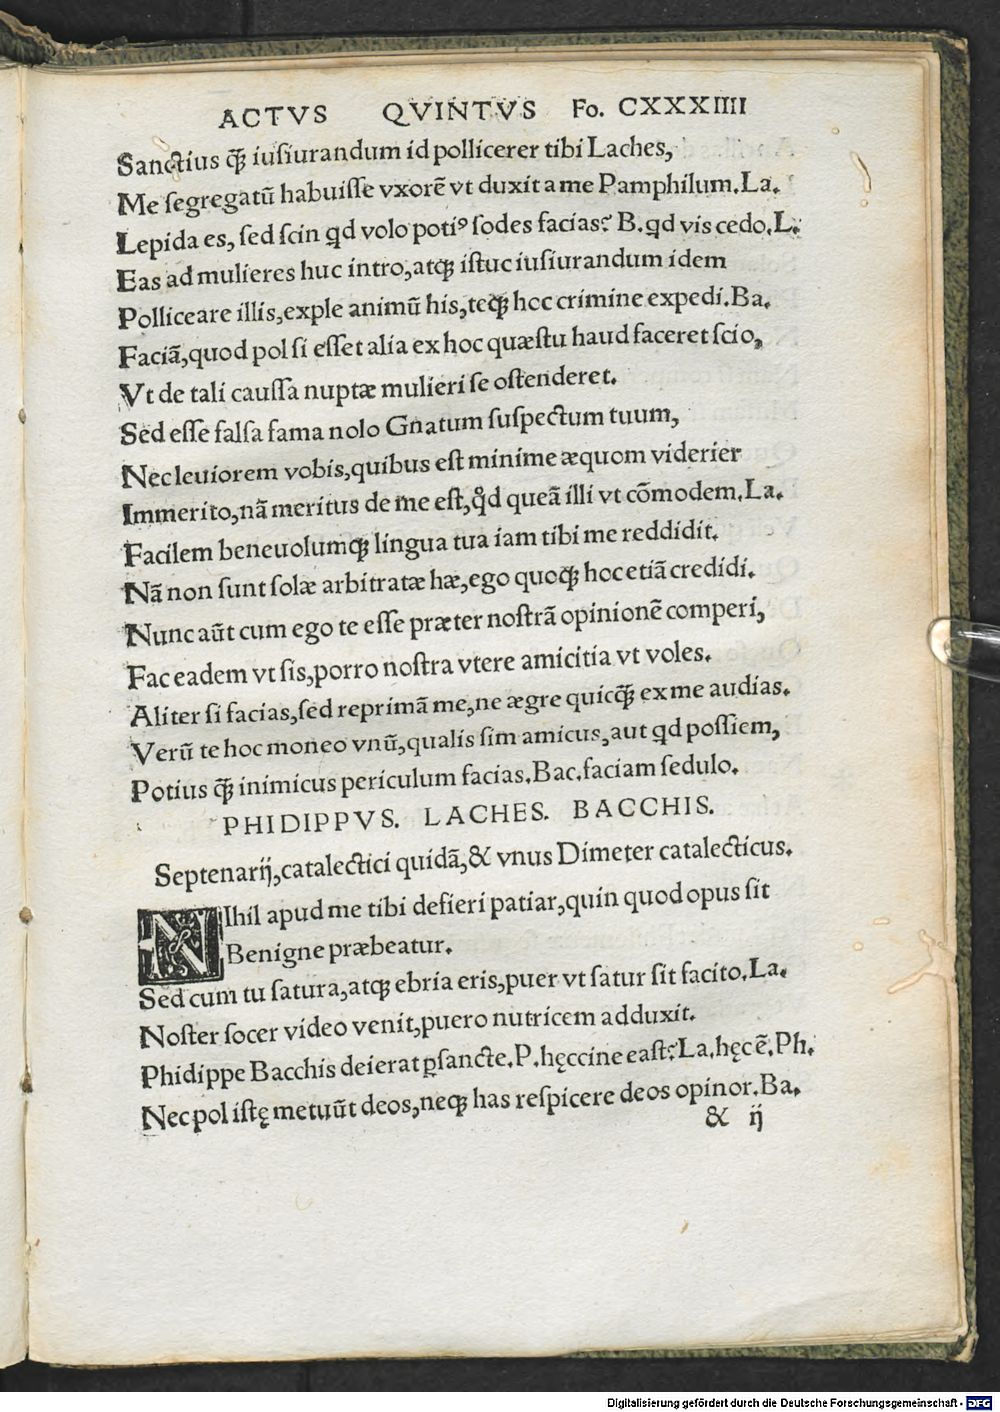 ACTVS QVINTVS Fo. CXXXIIII
Sanctius ꝙ̃ iuſiurandum id pollicerer tibi Laches,
Me ſegregatũ habuiſſe vxorẽ vt duxit a me Pamphilum.La.
Lepida es, ſed ſcin qd volo potiꝰ ſodes facias? B.qd vis cedo.L.
Eas ad mulieres huc intro,atqꝫ iſtuc iuſiurandum idem
Polliceare illis,exple animũ his,teqꝫ hoc crimine expedi.Ba.
Faciã,quod pol ſi eſſet alia ex hoc quæſtu haud faceret ſcio,
Vt de tali cauſſa nuptæ mulieri ſe oſtenderet.
Sed eſſe falſa fama nolo Gnatum ſuſpectum tuum,
Nec leuiorem vobis,quibus eſt minime æquom viderier
Immerito,nã meritus de me eſt,qd̊ queã illi vt cõmodem.La.
Facilem beneuolumqꝫ lingua tua iam tibi me reddidit.
Nã non ſunt ſolæ arbitratæ hæ,ego quoqꝫ hoc etiã credidi.
Nunc aũt cum ego te eſſe præter noſtrã opinionẽ comperi,
Fac eadem vt ſis,porro noſtra vtere amicitia vt voles.
Aliter ſi facias,ſed reprimã me,ne ægre quicꝙ̃ ex me audias.
Verũ te hoc moneo vnũ,qualis ſim amicus,aut qd poſſiem,
Potius ꝙ̃ inimicus periculum facias.Bac.faciam ſedulo.
PHIDIPPVS. LACHES. BACCHIS.
Septenarĳ,catalectici quidã,& vnus Dimeter catalecticus.
NIhil apud me tibi defieri patiar,quin quod opus ſit
Benigne præbeatur.
Sed cum tu ſatura,atqꝫ ebria eris,puer vt ſatur ſit facito.La.
Noſter ſocer video venit,puero nutricem adduxit.
Phidippe Bacchis deierat ꝑſancte.P.hęccine eaſt?La.hęc ẽ.Ph.
Nec pol iſtę metuũt deos,neqꝫ has reſpicere deos opinor.Ba.
& ĳ
Digitalisierung gefördert durch die Deutsche Forschungsgemeinschaft - DFG